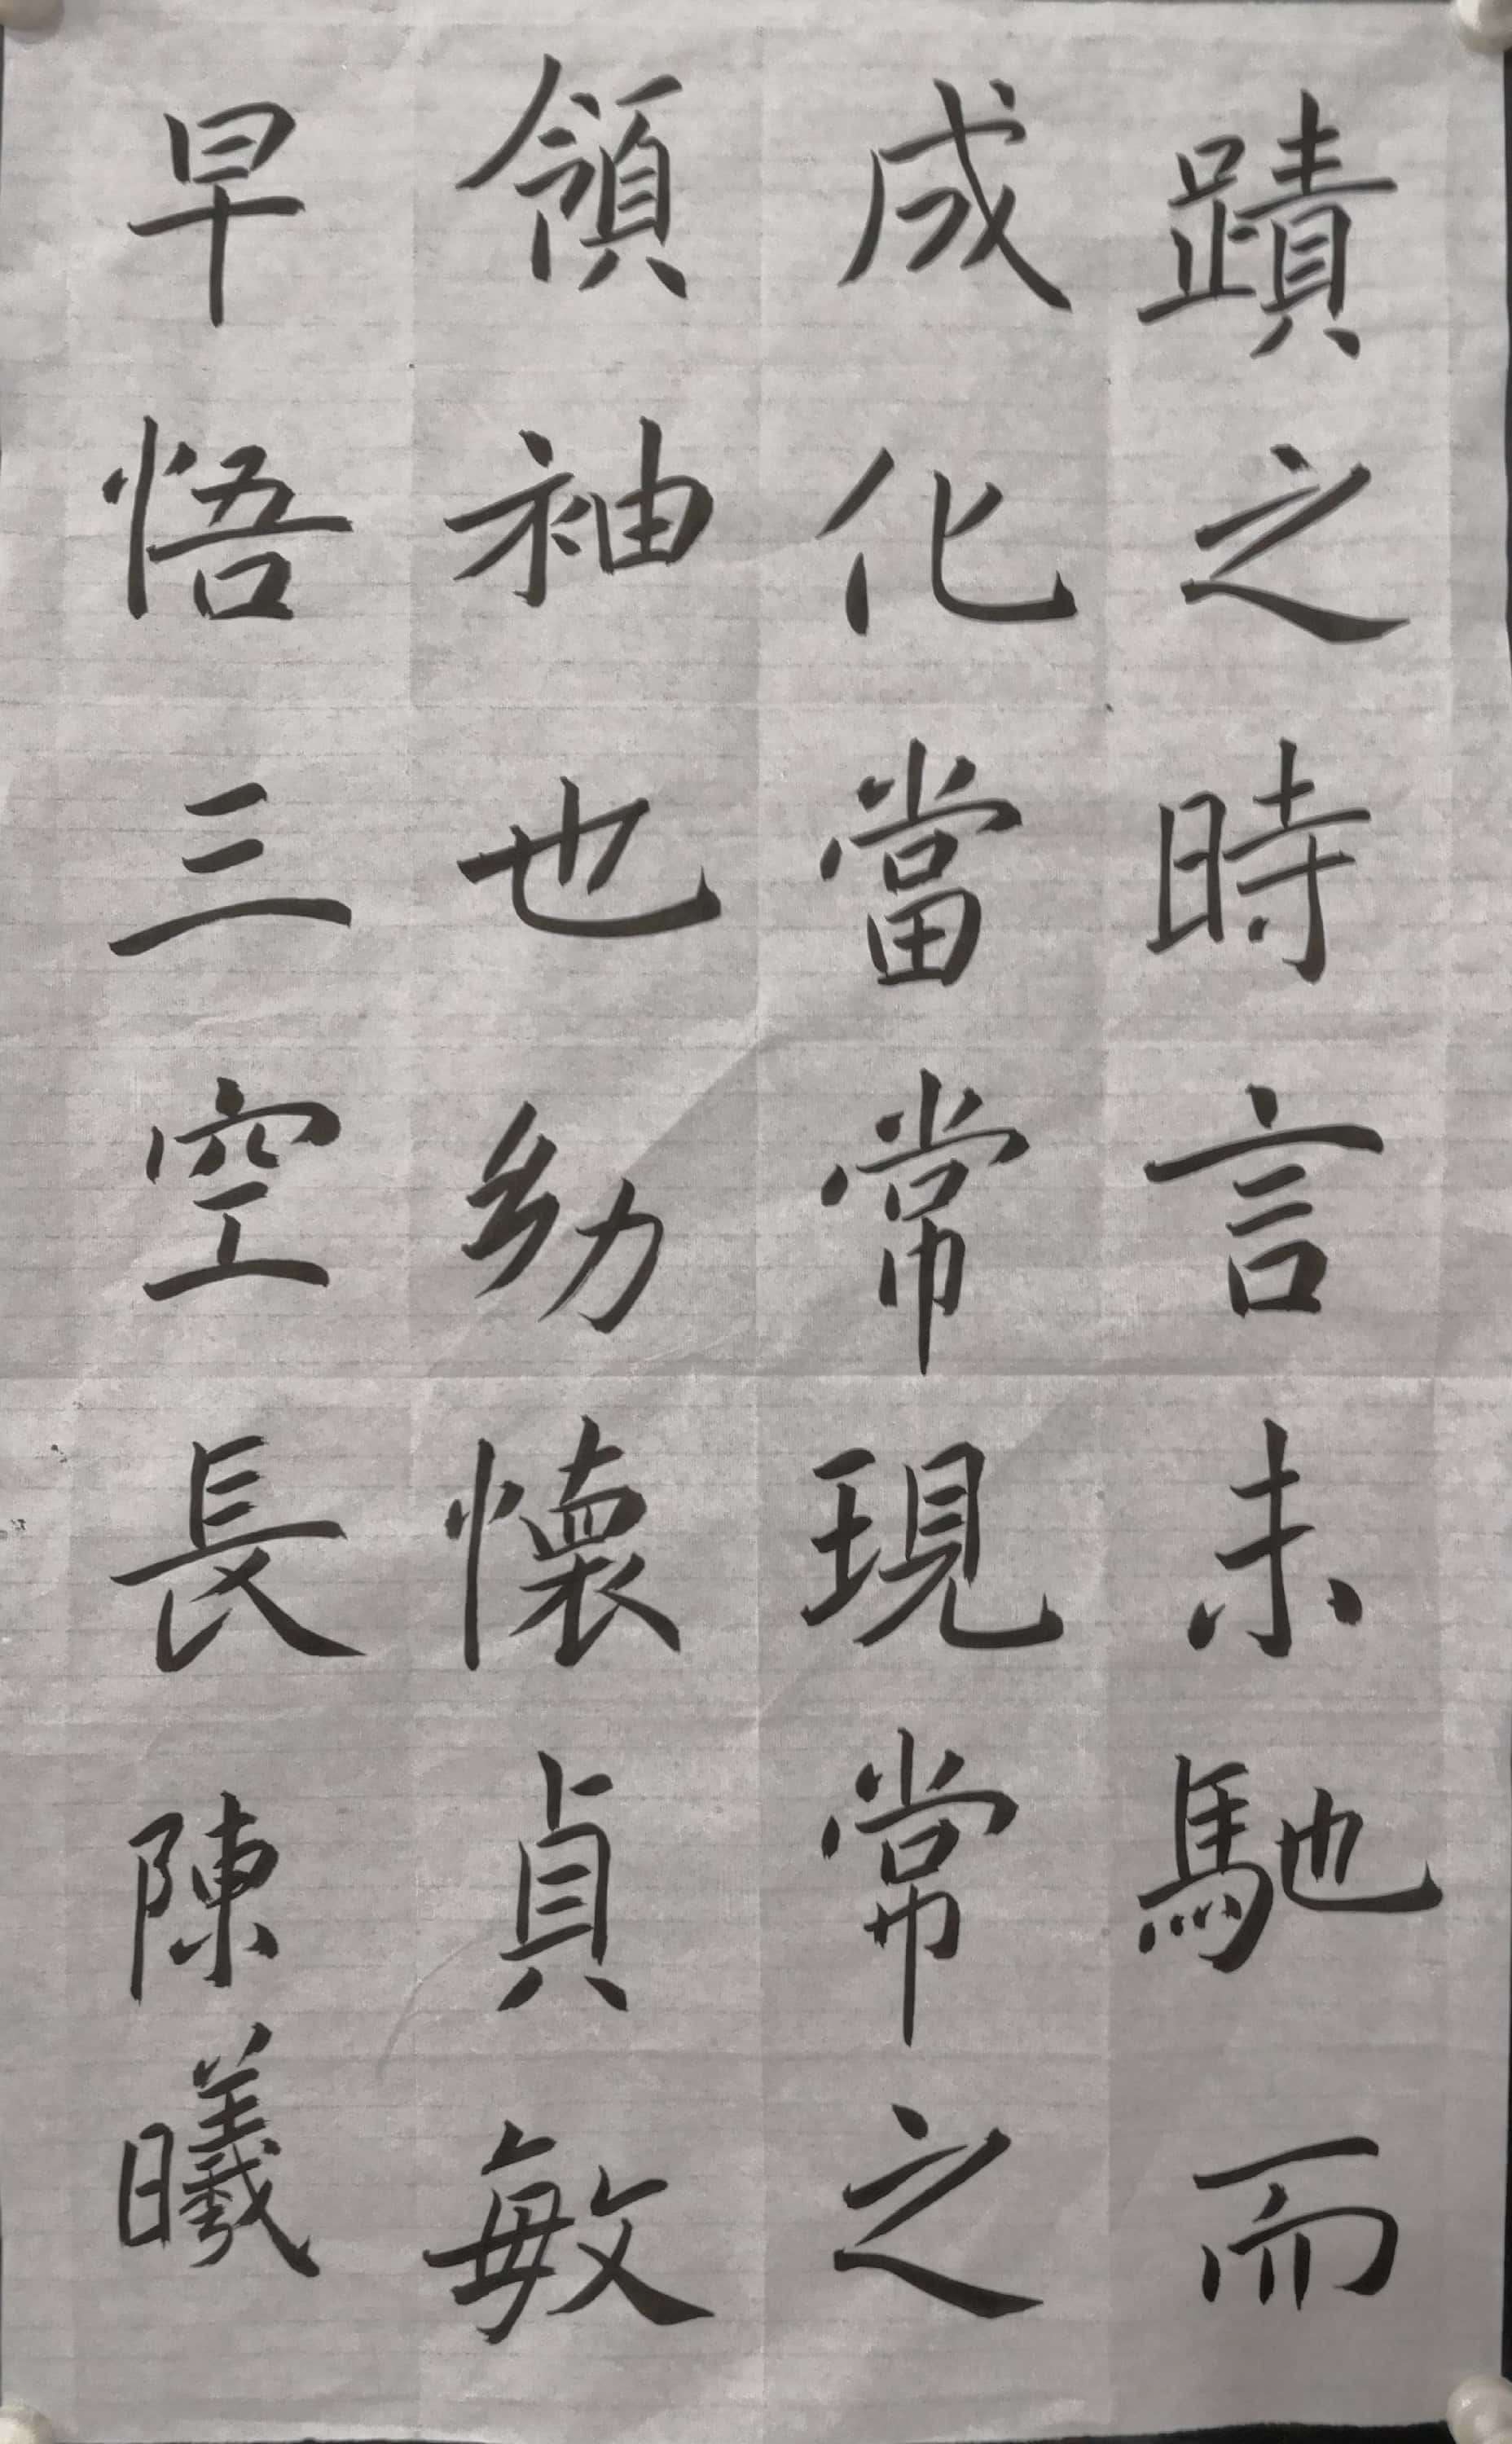 蹟之時言未馳而
成化當常常現常之
領袖也幼懷貞敏
早悟三空長陳曦